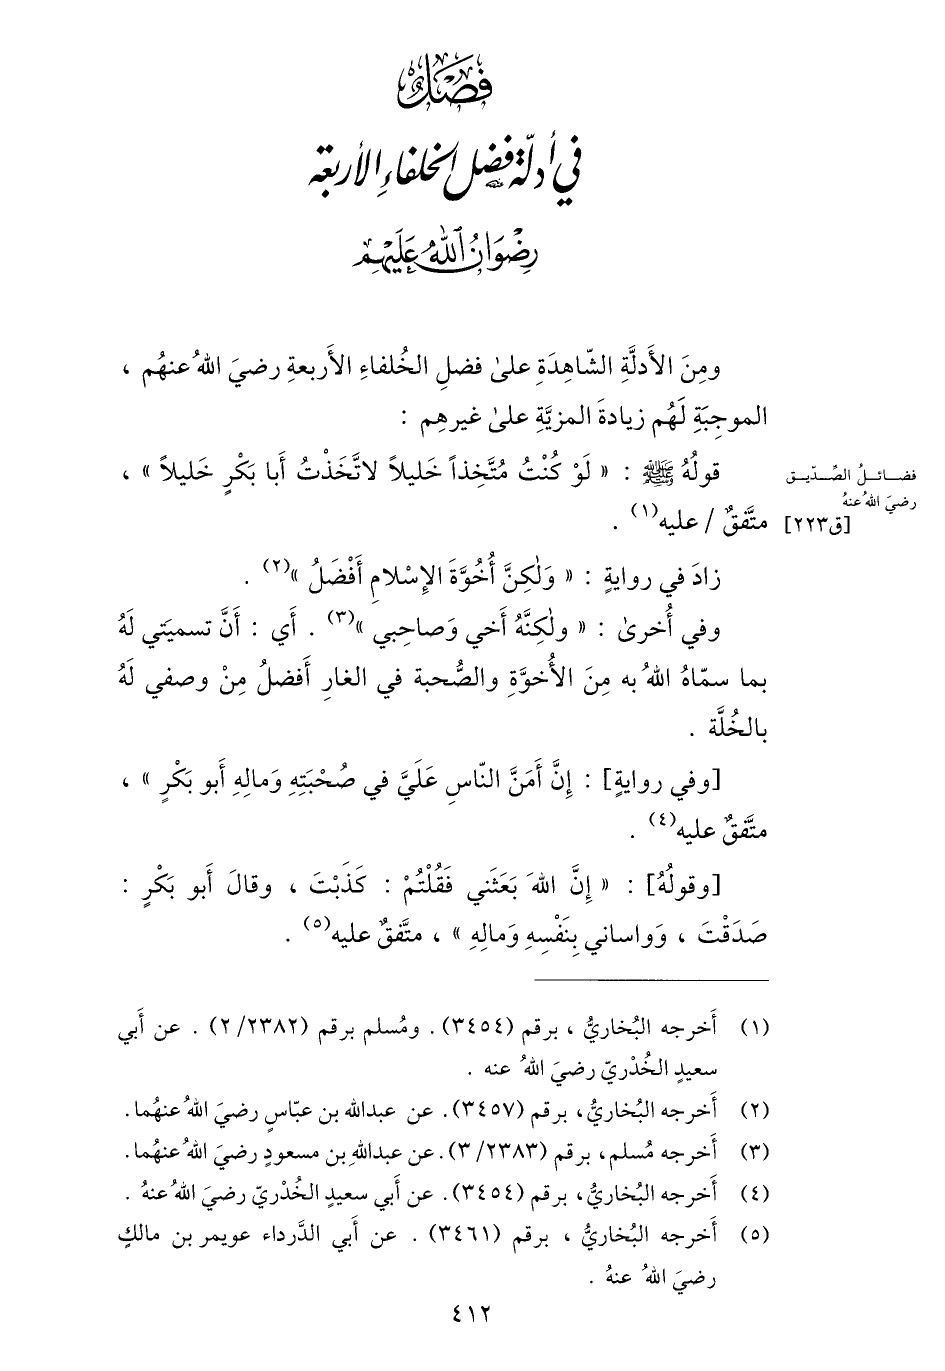 فَصْلٌ
في أدلّة فضل الخلفاءِ الأربعة
رِضْوَانُ اللهُ عَلَيْهِم
ومِنَ الأَدلَّةِ الشّاهِدَةِ علىٰ فضلِ الخُلفاءِ الأَربعةِ رضيَ اللهُ عنهُم ،
الموجِبَةِ لَهُم زيادةَ المزيَّةِ علىٰ غيرِهِم :
قولُهُ ﷺ : « لَوْ كُنْتُ مُتَّخِذاً خَليلاً لاتَّخَذْتُ أَبا بَكْرٍ خَليلاً » ،
فضـائـلُ الصِّـدّيـق
رضيَ اللهُ عنهُ
متَّفقٌ / عليه(١) .
[ق٢٢٣]
زادَ في روايةٍ : « وَلٰكِنَّ أُخُوَّةَ الإِسْلامِ أَفْضَلُ »(٢) .
وفي أُخرىٰ : « ولٰكِنَّهُ أَخي وَصاحِبي »(٣) . أَي : أَنَّ تسميَتي لَهُ
بما سمّاهُ اللهُ به مِنَ الأُخوَّةِ والصُّحبة في الغارِ أَفضلُ مِنْ وصفي لَهُ
بالخُلَّة .
[وفي روايةٍ] : إِنَّ أَمَنَّ النّاسِ عَلَيَّ في صُحْبَتِهِ وَمالِهِ أَبو بَكْرٍ » ،
متَّفقٌ عليه(٤) .
[وقولُهُ] : « إِنَّ اللهَ بَعَثَني فَقُلْتُمْ : كَذَبْتَ ، وقالَ أَبو بَكْرٍ :
صَدَقْتَ ، وَواساني بِنَفْسِهِ وَمالِهِ » ، متَّفقٌ عليه(٥) .
(١) أَخرجه البُخاريُّ ، برقم (٣٤٥٤). ومُسلم برقم (٢/٢٣٨٢) . عن أَبي
سعيدٍ الخُدْريّ رضيَ اللهُ عنه .
(٢) أَخرجه البُخاريُّ، برقم (٣٤٥٧). عن عبدالله بن عبّاسٍ رضيَ اللهُ عنهُما.
(٣) أَخرجه مُسلم، برقم (٣/٢٣٨٣). عن عبداللهِ بن مسعودٍ رضيَ اللهُ عنهُما.
(٤) أَخرجه البُخاريُّ، برقم (٣٤٥٤). عن أَبي سعيدٍ الخُدْريّ رضيَ اللهُ عنهُ .
(٥) أَخرجه البُخاريُّ ، برقم (٣٤٦١) . عن أَبي الدَّرداء عويمر بن مالكٍ
رضيَ اللهُ عنهُ .
٤١٢